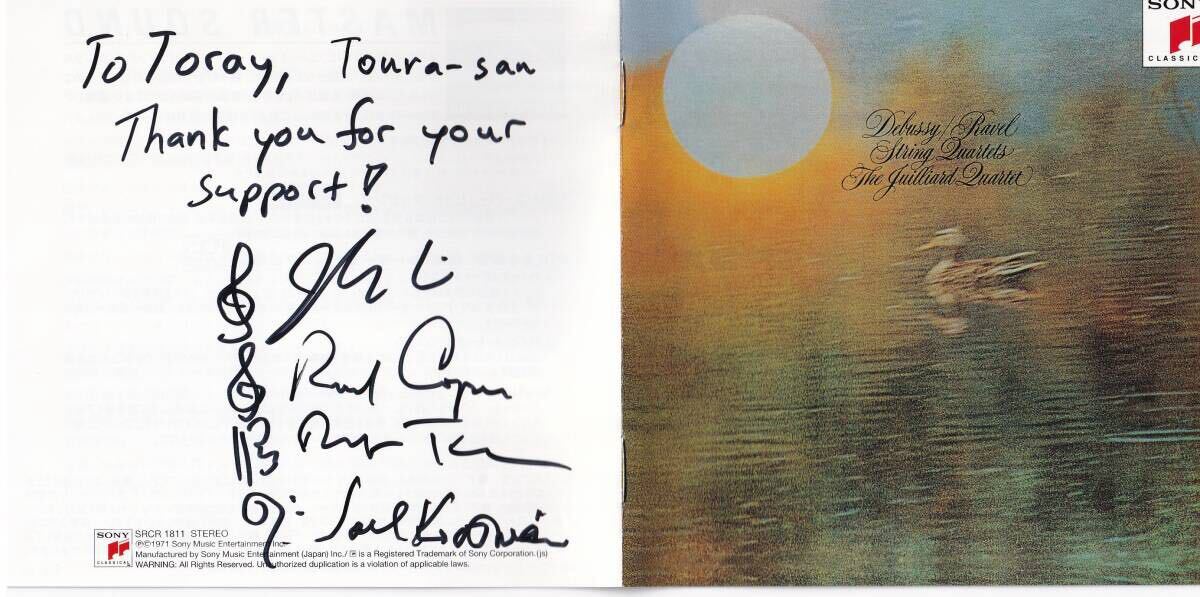 To Toray, Toura-san
Thank you for your
support!
Joel Krosnick
SONY
CLASSICAL
SRCR 1811 STEREO
℗©1971 Sony Music Entertainment Inc.
Manufactured by Sony Music Entertainment (Japan) Inc./ is a Registered Trademark of Sony Corporation.(js)
WARNING: All Rights Reserved. Unauthorized duplication is a violation of applicable laws.
MASTER SOUND
SONY
CLASSIC
Debussy/Ravel
String Quartets
The Juilliard Quartet